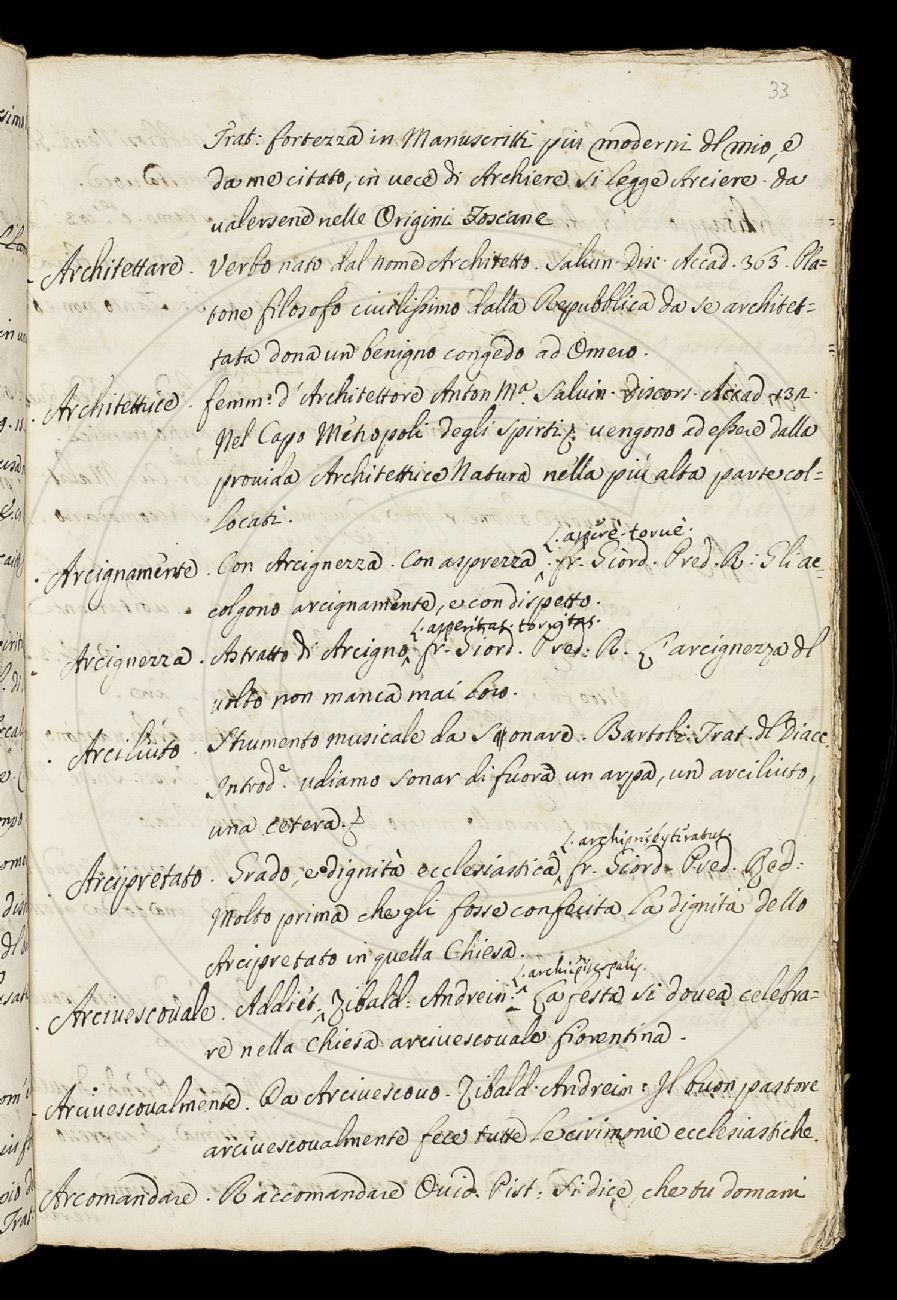 33
Trat: fortezza in Manuscritti piu moderni dl mio, e
da me citato, in uece di Archiere si legge Arciere. da
ualersene nelle Origini Toscane
Architettare. Verbo nato dal nome Architetto. Saluin. disc. Accad. 363. Pla=
tone filosofo ciuilissimo dalla Repubblica da se architet=
tata dona un benigno congedo ad Omero.
Architettrice. femm: d'Architettore Anton Mª. Saluin. discors. Accad. 131.
Nel Capo Metropoli degli spirti uengono ad essere dalla
prouida Architettrice Natura nella più alta parte col=
locati.
L. asperè. toruè.
Arcignamente. Con Arcignezza. Con asprezza. fr. Giord. Pred. R: Gli ac=
colgono arcignamente, e con dispetto.
L. asperitas. toruitas.
Arcignezza. Astratto di Arcigno. fr. Giord. Pred. R. L'arcignezza dl
uolto non manca mai loro.
Arciliuto. Strumento musicale da Sonare. Bartoli. Trat. dl Diacc.
Introde. udiamo sonar di fuora un arpa, un arciliuto,
una cetera.
L. archipresbyteratus.
Arcipretato. Grado, e dignità ecclesiastica. fr. Giord. Pred. Red:
Molto prima che gli fosse conferita la dignità dello
Arcipretato in quella Chiesa.
L. archiepiscopalis.
Arciuescouale. Addiet. Zibald: Andrein: La festa si douea celebra=
re nella Chiesa arciuescouale fiorentina.
Arciuescoualmente. Da Arciuescouo. Zibald. Andrein: Il buon pastore
arciuescoualmente fece tutte le cirimonie ecclesiastiche.
Arcomandare. Raccomandare Ouid. Pist: Si dice, che tu domani